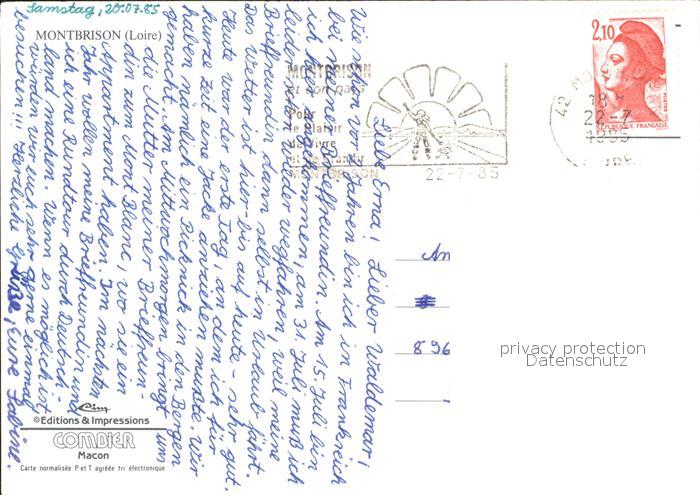 Samstag, 20.07.85
MONTBRISON (Loire)
Liebe Erna! Lieber Waldemar!
Wie schon vor 2 Jahren bin ich in Frankreich
bei meiner Brieffreundin. Am 15. Juli bin
ich hier angekommen, am 31. Juli muß ich
leider schon wieder wegfahren, weil meine
Brieffreundin dann selbst in Urlaub fährt.
Das Wetter ist hier - bis auf heute - sehr gut.
Heute war der erste Tag, an dem ich für
kurze Zeit eine Jacke anziehen mußte. Wir
haben nämlich ein Picknick in den Bergen
gemacht. Am Mittwochmorgen bringt uns
die Mutter meiner Brieffreun-
din zum Mont Blanc, wo sie ein
Appartement haben. Im nächsten
Jahr wollen meine Brieffreundin und
ich eine Radtour durch Deutsch-
land machen. Wenn es möglich ist
würden wir euch sehr gerne einmal
besuchen!!! Herzliche Grüße, Eure Sabine.
MONTBRISON
et son pays
Pour
le Plaisir
de Vivre
MONTBRISON
22-7-85
42
18 H
22-7
1985
LOIRE
2,10
POSTES
REPUBLIQUE FRANÇAISE
An
896
privacy protection
Datenschutz
Cim
©Editions & Impressions
COMBIER
Macon
Carte normalisée P et T agréée tri électronique